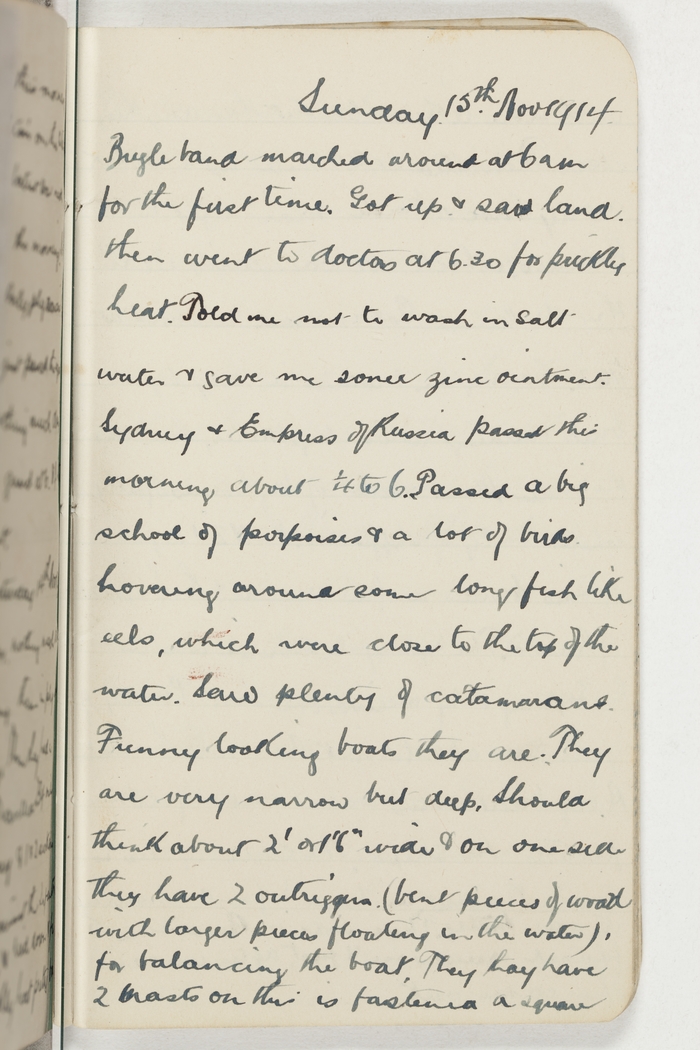 Sunday 15th Nov 1914.
Bugle band marched around at 6 am
for the first time. Got up & saw land.
then went to doctor at 6.30 for prickly
heat. Told me not to wash in salt
water & gave me some zinc ointment.
Sydney & Empress of Russia passed this
morning about ¼ to 6. Passed a big
school of porpoises & a lot of birds
hovering around some long fish like
eels, which were close to the top of the
water. Saw plenty of catamarans.
Funny looking boats they are. They
are very narrow but deep. Should
think about 2' or 1'6" wide & on one side
they have 2 outriggers. (bent pieces of wood
with larger pieces floating in the water),
for balancing the boat. They have
2 masts on this is fastened a square